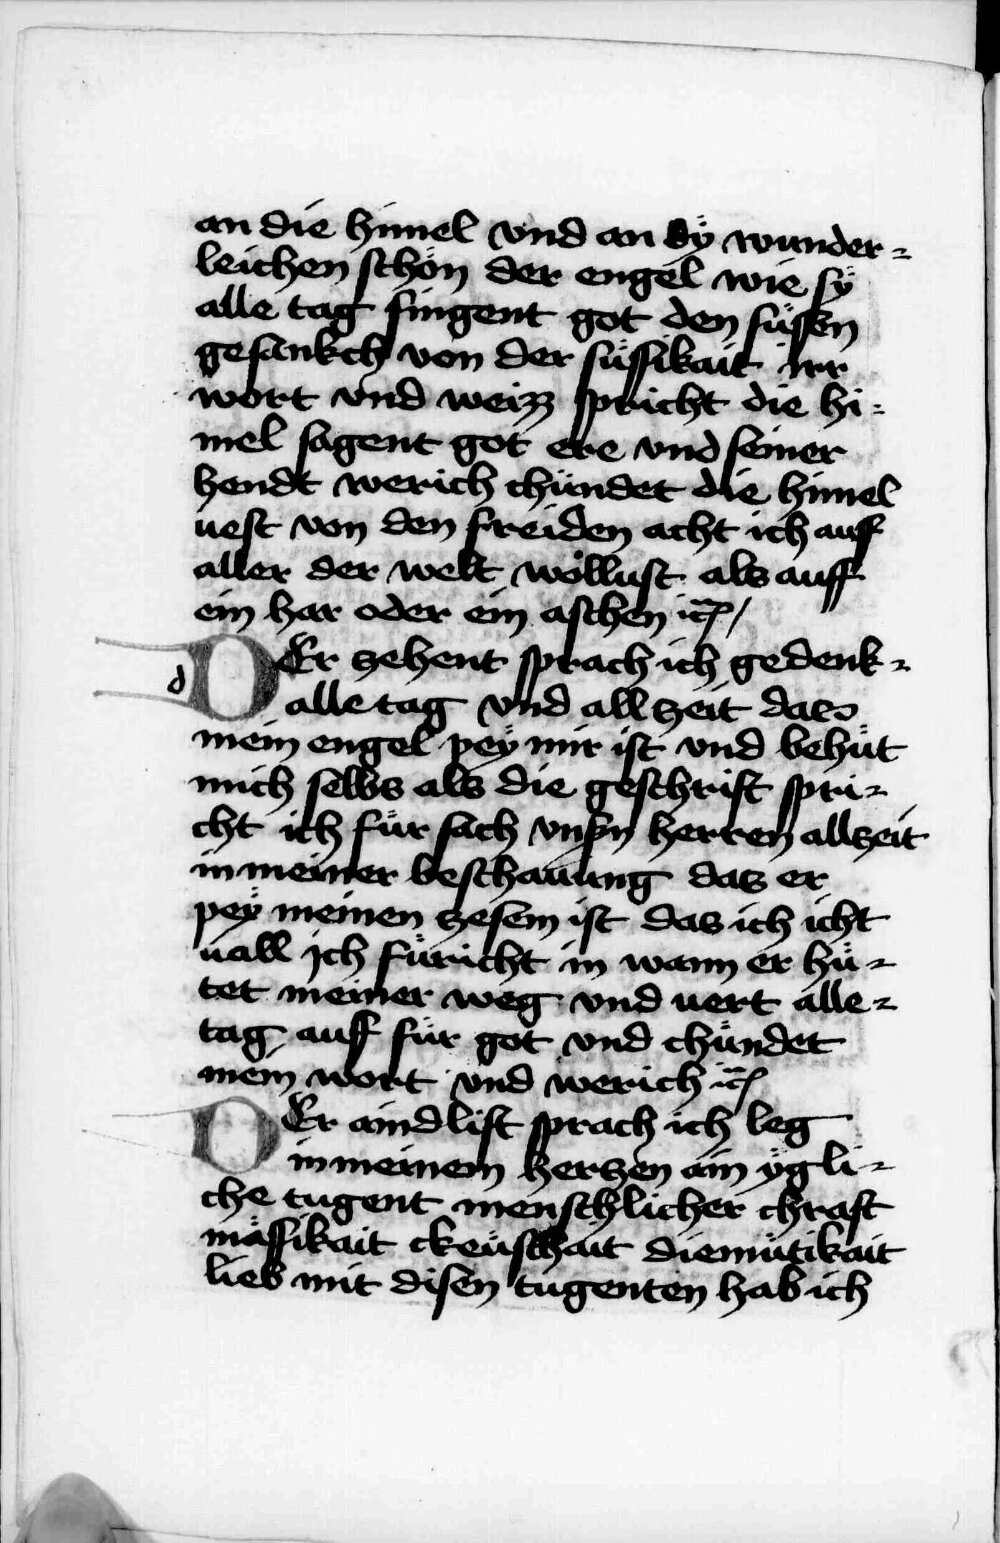 an die himel vnd an dÿ wunder⸗
leichen schön der engel wie sÿ
alle tag singent got den süssen
gesankch von der süssikait irr
wort vnd weizz spricht die hi⸗
mel sagent got ere vnd seiner
hendt werich chündet die himel
uest von den freiden acht ich auff
aller der welt wöllust als auff
ein har oder ein aschen ⁊c̄
d DEr zehent sprach ich gedenk⸗
alle tag vnd all zeit das
mein engel peÿ mir ist vnd behüt
mich selbs als die geschrift spri⸗
cht ich für sach vnsn̄ herren allzeit
in meiner beschauung das er
peÿ meinen zesem ist das ich icht
uall Ich füricht in wann er hü⸗
tet meiner weg vnd uert alle⸗
tag auff für got vnd chündet
mein wort vnd werich ⁊c̄
DEr aindlist sprach ich leg
in meinem herzen ain ÿgli⸗
che tugent menschlicher chraft
mässikait ckeüschait diemütikait
lieb mit disen tugenten hab ich